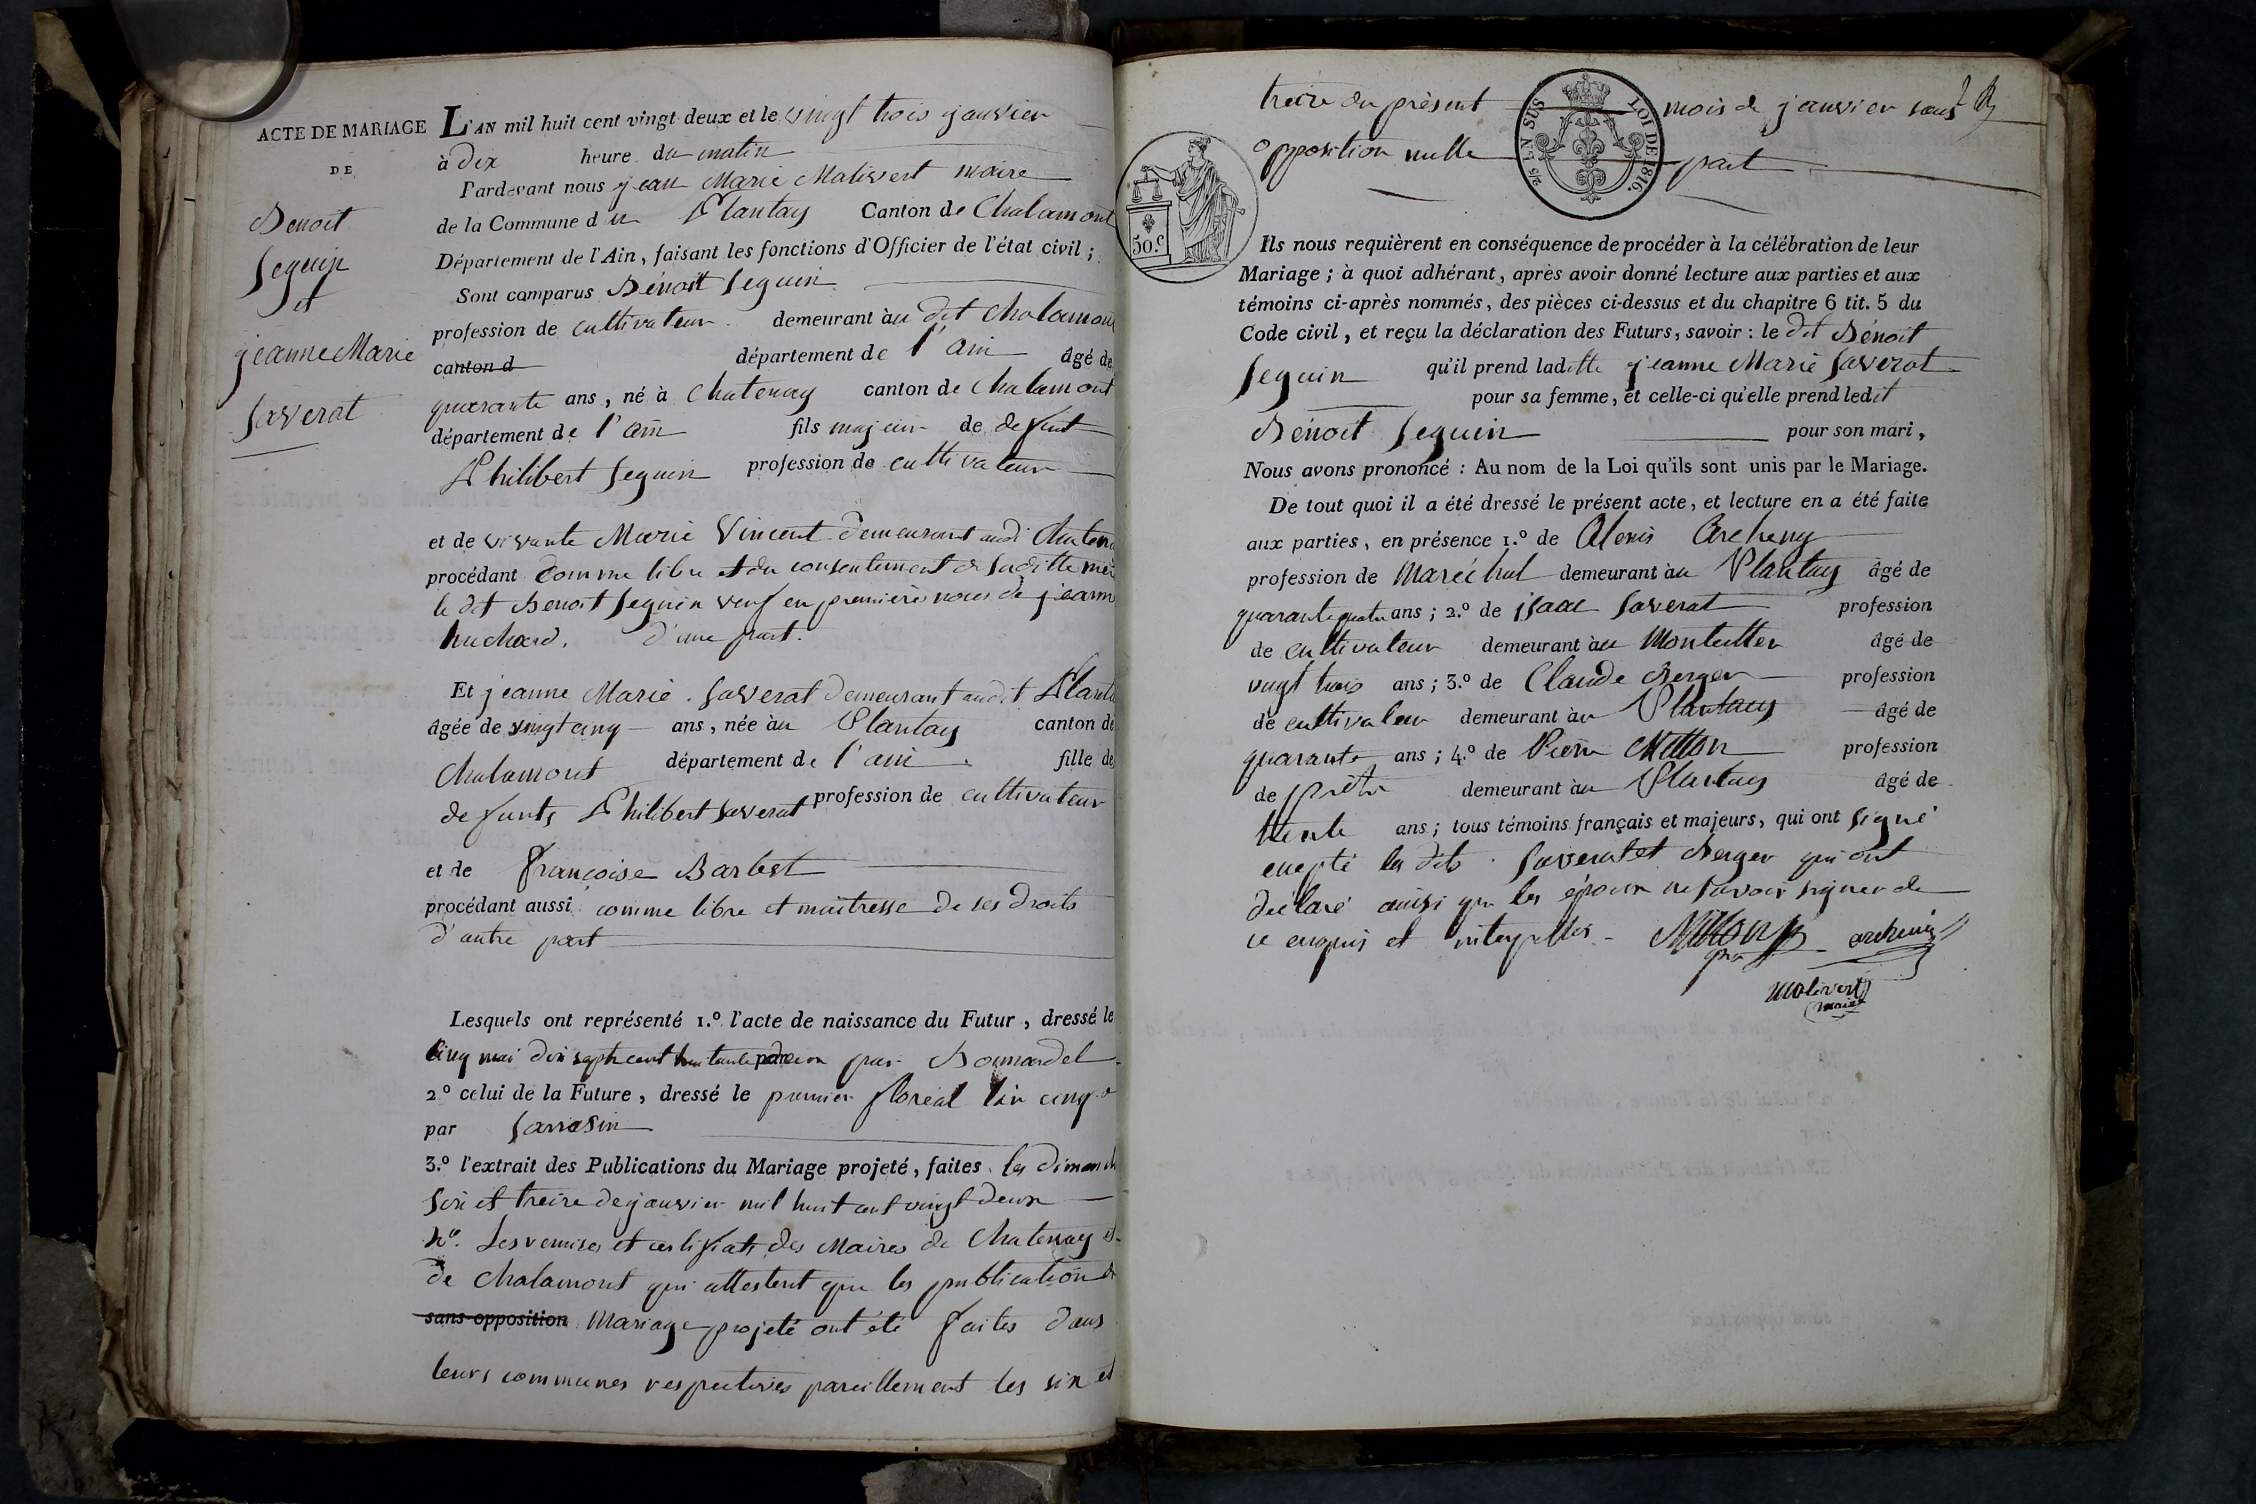 ACTE DE MARIAGE
DE
Benoit
Seguin
et
jeanne Marie
Saverat
L'AN mil huit cent vingt-deux et le vingt trois janvier
à dix heure du matin
Pardevant nous jean Marie Malivert maire
de la Commune du Plantay Canton de Chalamont
Département de l'Ain, faisant les fonctions d'Officier de l'état civil ;
Sont comparus Bénoit Seguin
profession de cultivateur demeurant au dit chalamont
canton d département de l'ain âgé de
quarante ans, né à Chatenay canton de Chalamont
département de l'ain fils majeur de defunt
Philibert Seguin profession de cultivateur
et de vivante Marie Vincent demeurant audi Chatena
procédant comme libre et du consentement de saditte mer
le dit Benoit Seguin veuf en premières noces de jeann
huchard, d'une part.
Et jeanne Marie Saverat demeurant audit Planta
âgée de vingt cinq ans, née au Plantay canton de
Chalamont département de l'ain fille de
defunts Philibert Saverat profession de cultivateur
et de françoise Barbet
procédant aussi comme libre et maitresse de ses droits
d'autre part
Lesquels ont représenté 1.º l'acte de naissance du Futur, dressé le
Cinq mai dix sept cent par
2º celui de la Future, dressé le premier floréal l'an cinq
par Sarrasin
3.º l'extrait des Publications du Mariage projeté, faites les dimanch
Six et treize de janvier mil huit cent vingt deux
4º. Les remises et certificats des Maires de Chatenay et
de Chalamont qui attestent que les publication de
sans opposition Mariage projeté ont été faites dans
leurs communes respectives pareillement les six et
treize du présent mois de janvier sans
opposition nulle part
2/5 EN SUS LOI DE 1816.
50.c
Ils nous requièrent en conséquence de procéder à la célébration de leur
Mariage ; à quoi adhérant, après avoir donné lecture aux parties et aux
témoins ci-après nommés, des pièces ci-dessus et du chapitre 6 tit. 5 du
Code civil, et reçu la déclaration des Futurs, savoir : le dit Bénoit
Seguin qu'il prend laditte jeanne Marie Saverat
pour sa femme, et celle-ci qu'elle prend ledit
Bénoit Seguin pour son mari,
Nous avons prononcé : Au nom de la Loi qu'ils sont unis par le Mariage.
De tout quoi il a été dressé le présent acte, et lecture en a été faite
aux parties, en présence 1.º de Alexis Archeny
profession de Maréchal demeurant au Plantay âgé de
quarante quatre ans ; 2.º de isaac Saverat profession
de cultivateur demeurant au Montellier âgé de
vingt trois ans ; 3.º de Claude Berger profession
de cultivateur demeurant au Plantay âgé de
quarante ans ; 4.º de Pierre Mitton profession
de prêtre demeurant au Plantay âgé de
trente ans ; tous témoins français et majeurs, qui ont signé
excepté les dits Saverat et Berger qui ont
déclaré ainsi que les époux ne savoir signer de
ce enquis et interpellés Mitton archeny
malivert
maire